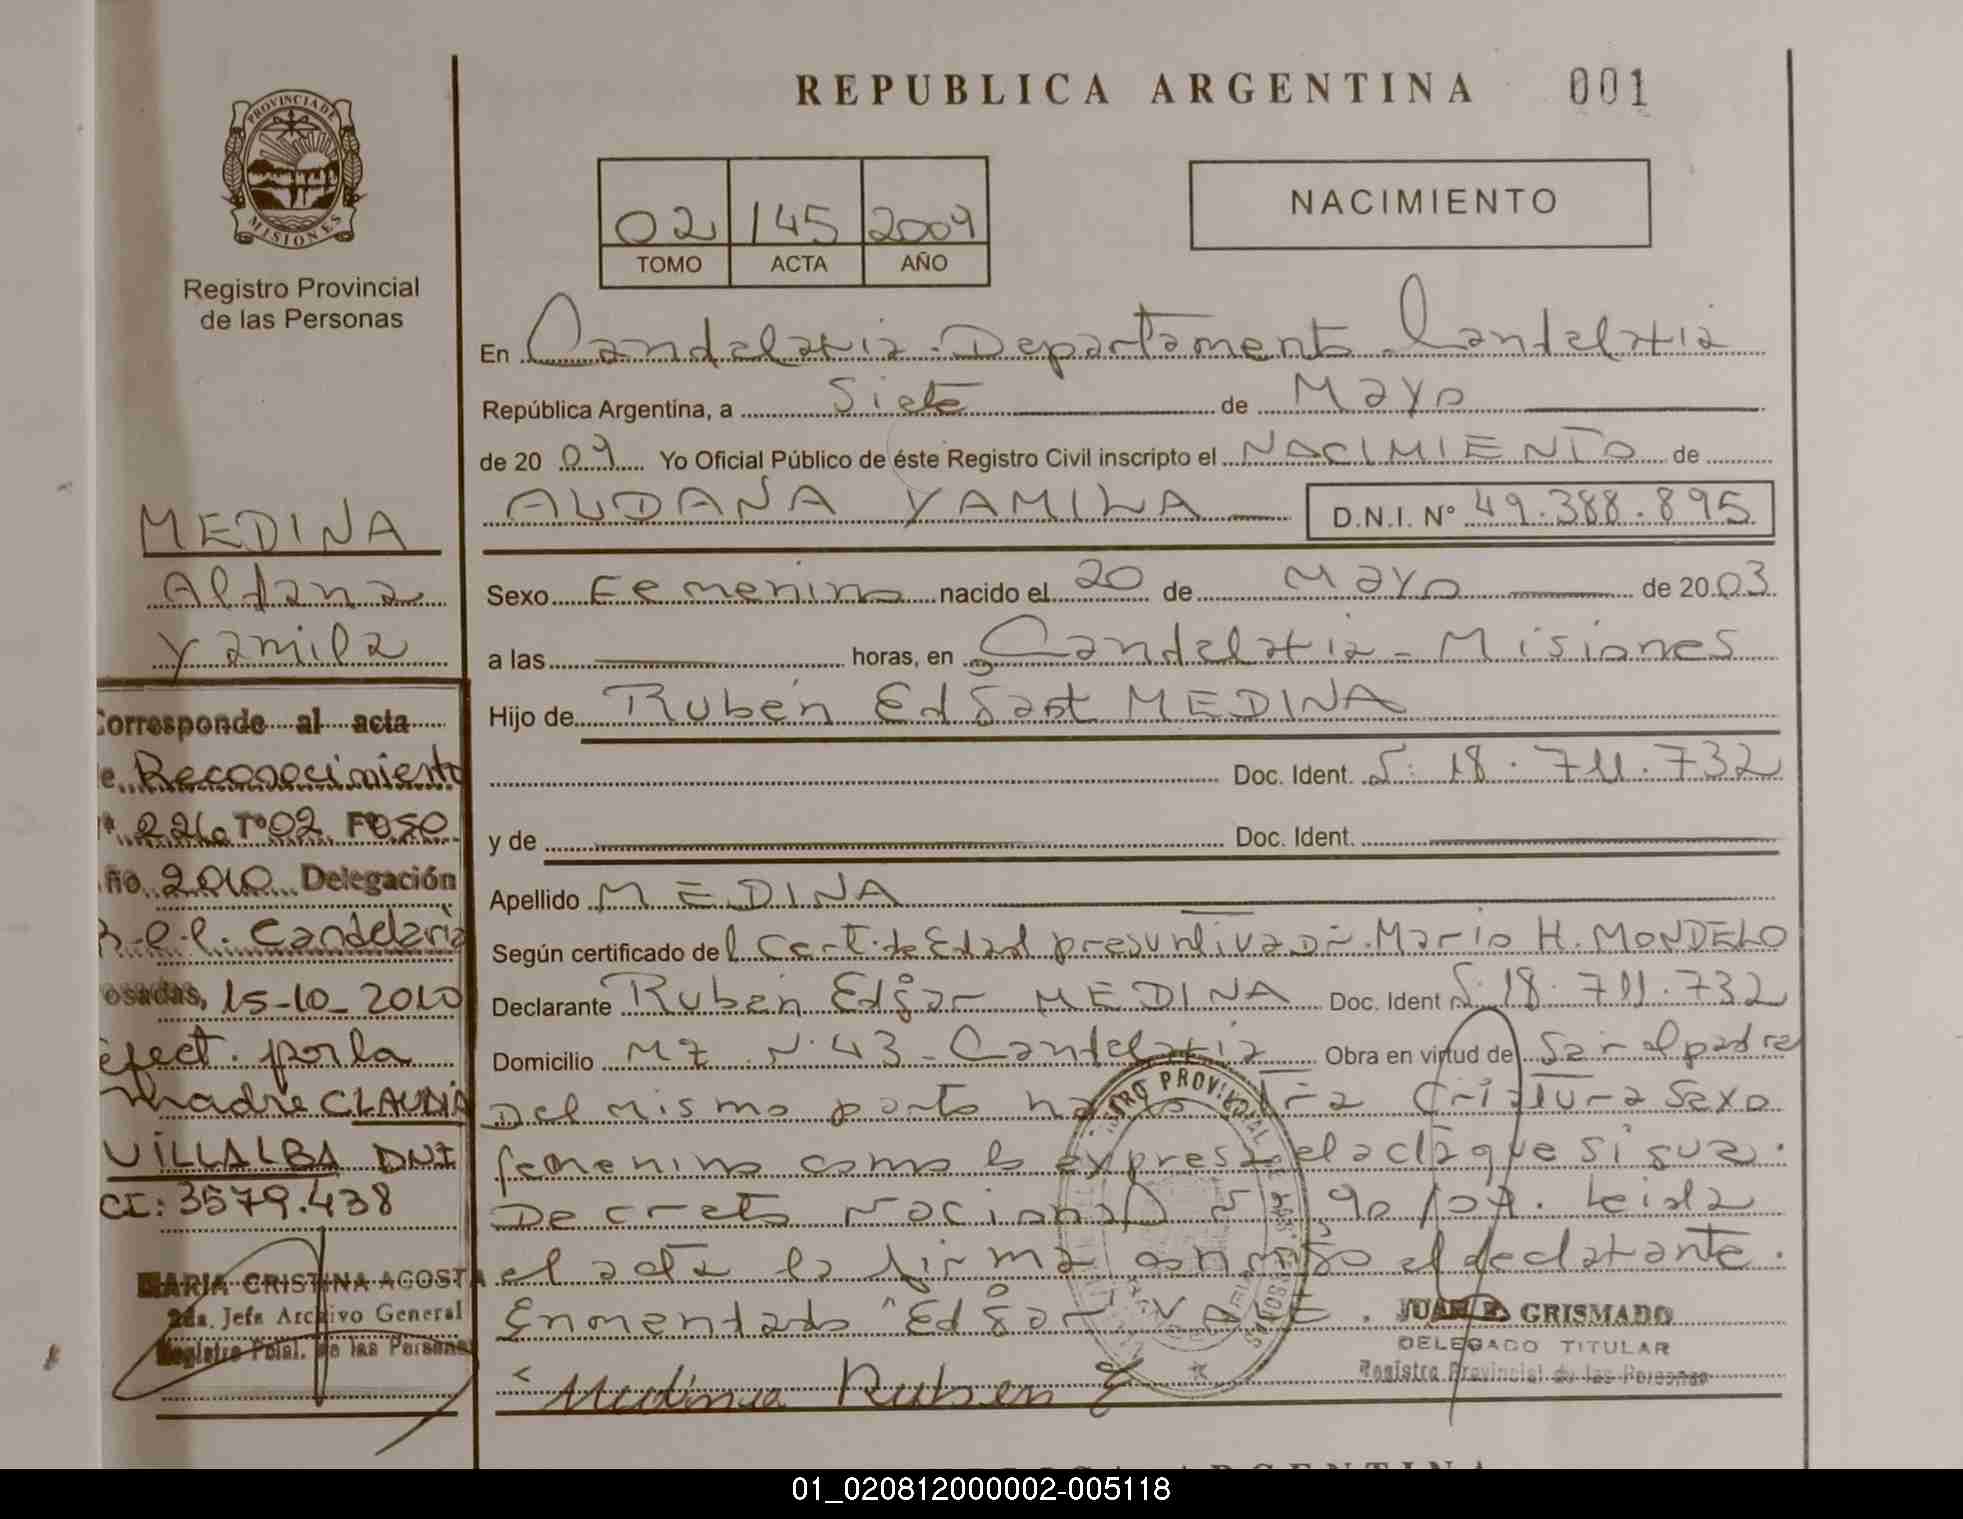 REPUBLICA ARGENTINA 001
PROVINCIA DE
MISIONES
Registro Provincial
de las Personas
02 145 2009
TOMO ACTA AÑO
NACIMIENTO
En Candelaria. Departamento Candelaria
República Argentina, a Siete de Mayo
de 20 09 Yo Oficial Público de éste Registro Civil inscripto el NACIMIENTO de
ALDANA YAMILA D.N.I. Nº 49.388.895
Sexo Femenino nacido el 20 de Mayo de 20 03
a las horas, en Candelaria - Misiones
Hijo de Rubén Edgart MEDINA
Doc. Ident. 18.711.732
y de Doc. Ident.
Apellido MEDINA
Según certificado de l Cert. de Edad presuntiva Dr. Mario H. MONDELO
Declarante Rubén Edgar MEDINA Doc. Ident 18.711.732
Domicilio MZ N° 43 - Candelaria Obra en virtud de Ser el padre
Del mismo parto otra Criatura Sexo
femenino como lo expresa el acta que sigue.
Decreto Nacional 90/09. Leida
el acta la firma conmigo el declarante.
Enmendado "Edgar" VALE.
Medina Ruben E
JUAN GRISMADO
DELEGADO TITULAR
Registro Provincial de las Personas
MEDINA
Aldana
Yamila
Corresponde al acta
de Reconocimiento
226 Tº 02 Fº 50
Año 2010 Delegación
R.P.P. Candelaria
Posadas, 15-10-2010
efect. por la
madre CLAUDIA
VILLALBA DNI
CI: 3579.438
MARIA CRISTINA ACOSTA
2da. Jefa Archivo General
Registro Pcial. de las Personas
ARGENTINA
01_020812000002-005118